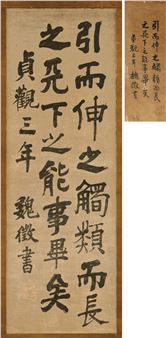 引而伸之觸類而長
之天下之能事畢矣
貞觀三年　魏徵書
引而伸之觸類而長
之天下之能事畢矣
貞觀三年　魏徵書